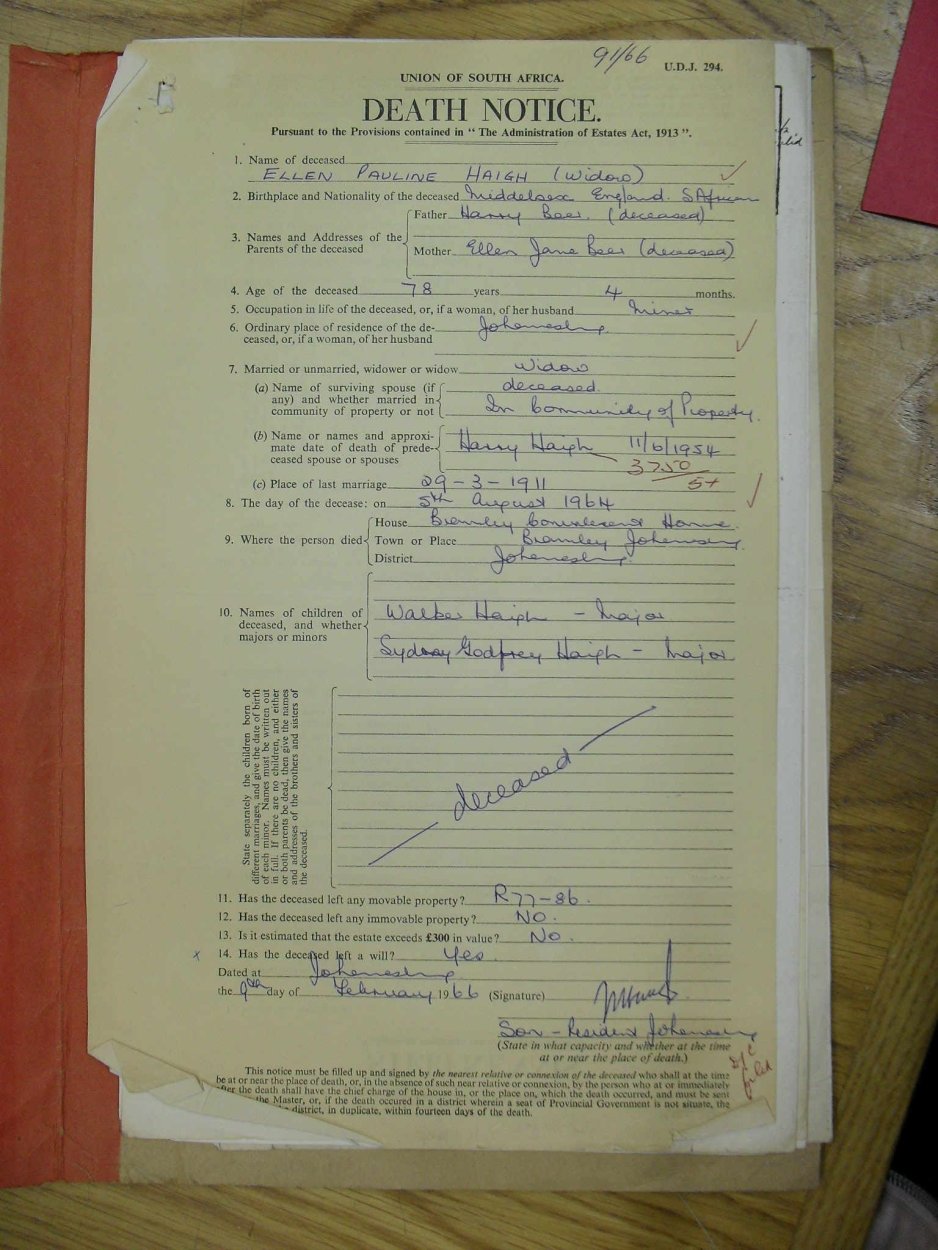 91/66
U.D.J. 294.
UNION OF SOUTH AFRICA.
DEATH NOTICE.
Pursuant to the Provisions contained in “ The Administration of Estates Act, 1913 ”.
1. Name of deceased
ELLEN PAULINE HAIGH (Widow)
2. Birthplace and Nationality of the deceased Middelsex England. SAfrican
3. Names and Addresses of the Parents of the deceased
Father Harry Beer. (deceased)
Mother Ellen Jane Beer (deceased)
4. Age of the deceased 78 years 4 months.
5. Occupation in life of the deceased, or, if a woman, of her husband Miner
6. Ordinary place of residence of the de-
ceased, or, if a woman, of her husband
Johannesburg.
7. Married or unmarried, widower or widow Widow
(a) Name of surviving spouse (if
any) and whether married in
community of property or not
deceased.
In Community of Property.
(b) Name or names and approxi-
mate date of death of prede-
ceased spouse or spouses
Harry Haigh 11/6/1954
3750
5+
(c) Place of last marriage 29-3-1911
8. The day of the decease: on 5th August 1964
9. Where the person died
House Bramley Convalescent Home.
Town or Place Bramley Johannesburg.
District Johannesburg.
10. Names of children of
deceased, and whether
majors or minors
Walter Haigh - Major
Sydney Godfrey Haigh - Major
State separately the children born of
different marriages, and give the date of birth
of each minor. Names must be written out
in full. If there are no children, and either
or both parents be dead, then give the names
and addresses of the brothers and sisters of
the deceased.
deceased
11. Has the deceased left any movable property? R77-86.
12. Has the deceased left any immovable property? NO.
13. Is it estimated that the estate exceeds £300 in value? No.
x 14. Has the deceased left a will? Yes.
Dated at Johannesburg
the 9th day of February 1966 (Signature)
Son - Resident Johannesburg
(State in what capacity and whether at the time
at or near the place of death.)
This notice must be filled up and signed by the nearest relative or connexion of the deceased who shall at the time
be at or near the place of death, or, in the absence of such near relative or connexion, by the person who at or immediately
after the death shall have the chief charge of the house in, or the place on, which the death occurred, and must be sent
the Master, or, if the death occured in a district wherein a seat of Provincial Government is not situate, the
district, in duplicate, within fourteen days of the death.
filed